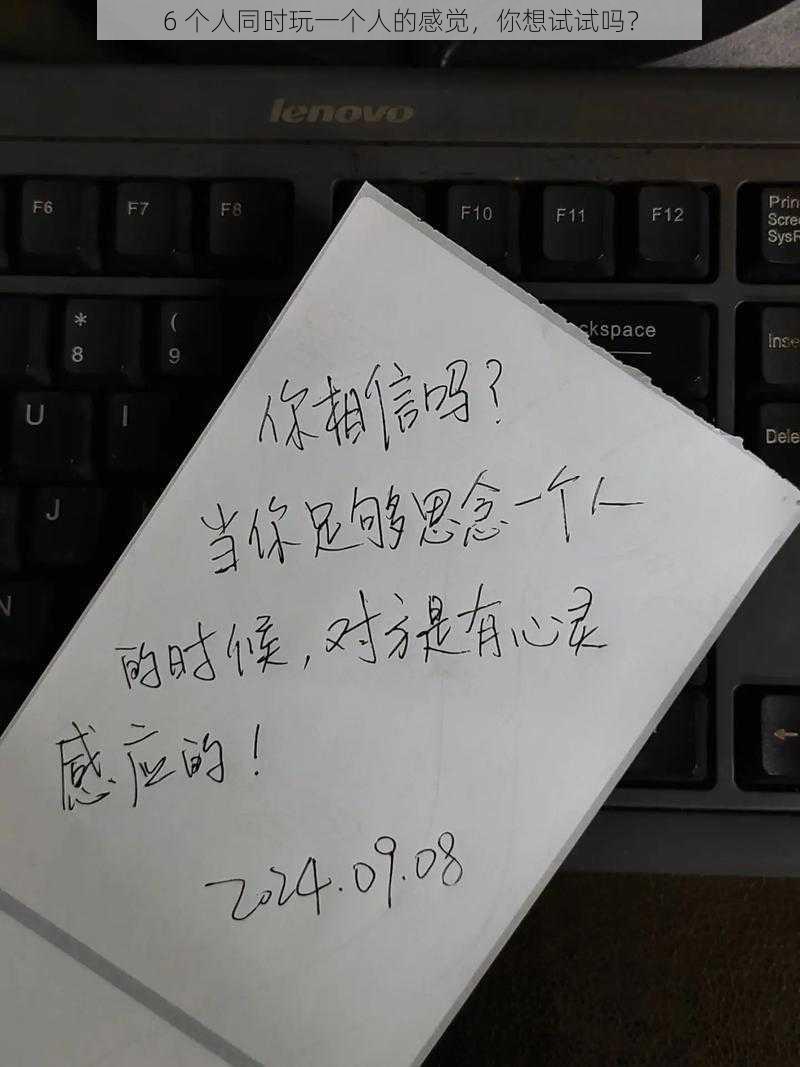 6 个人同时玩一个人的感觉，你想试试吗？
lenovo
F6 F7 F8 F10 F11 F12
* 8 ( 9
kspace
U I
J
N
你相信吗？
当你足够思念一个人
的时候，对方是有心灵
感应的！
2024.09.08